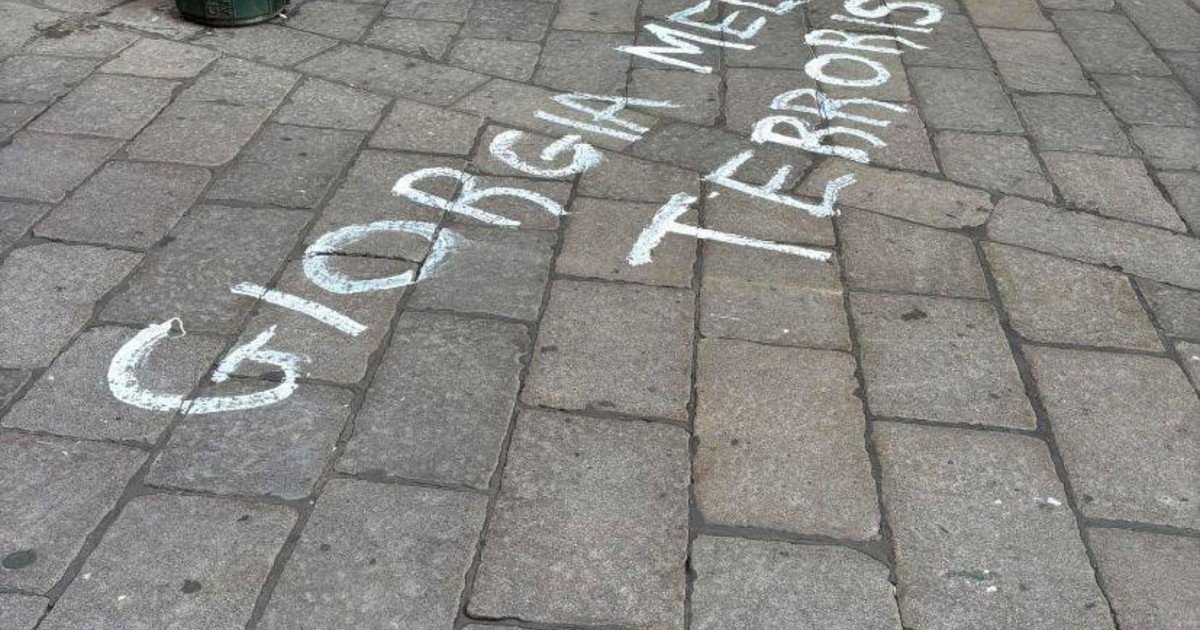 GIORGIA MEL
TERRORIS